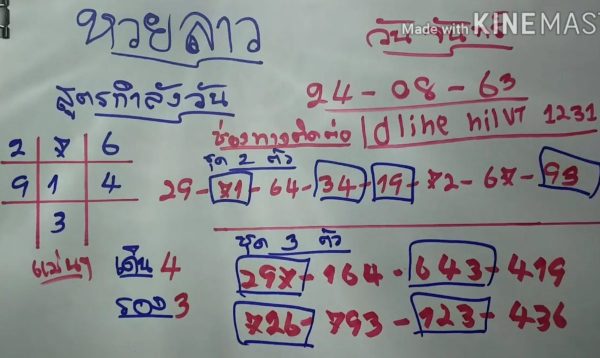 Made with KINEMAS
หวยลาว
วันจันทร์
24-08-63
สูตรกำลังวัน
ช่องทางติดต่อ Id line nilVT 1231
2 7 6
9 1 4
3
แม่นๆ
ชุด 2 ตัว
29-71-64-34-19-72-67-93
เด่น 4
รอง 3
ชุด 3 ตัว
297-164-643-419
726-793-123-436